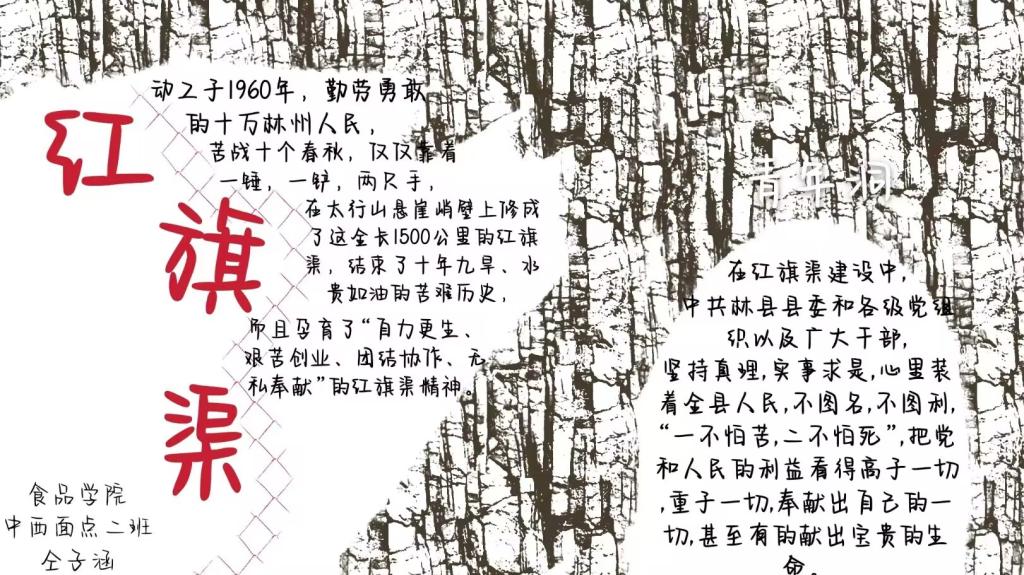 红
旗
渠
动工于1960年，勤劳勇敢
的十万林州人民，
苦战十个春秋，仅仅靠着
一锤，一铲，两只手，
在太行山悬崖峭壁上修成
了这全长1500公里的红旗
渠，结束了十年九旱、水
贵如油的苦难历史，
而且孕育了“自力更生、
艰苦创业、团结协作、无
私奉献”的红旗渠精神。
食品学院
中西面点二班
仝子涵
青年洞
在红旗渠建设中，
中共林县县委和各级党组
织以及广大干部，
坚持真理,实事求是,心里装
着全县人民,不图名,不图利,
“一不怕苦,二不怕死”,把党
和人民的利益看得高于一切
,重于一切,奉献出自己的一
切,甚至有的献出宝贵的生
命。